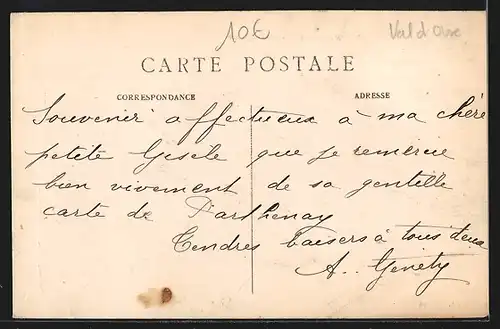 10€
Val d'Oise
CARTE POSTALE
CORRESPONDANCE
ADRESSE
Souvenir affectueux à ma chère
petite Gisèle que je remercie
bien vivement de sa gentille
carte de Parthenay
Tendres baisers à tous deux
A.